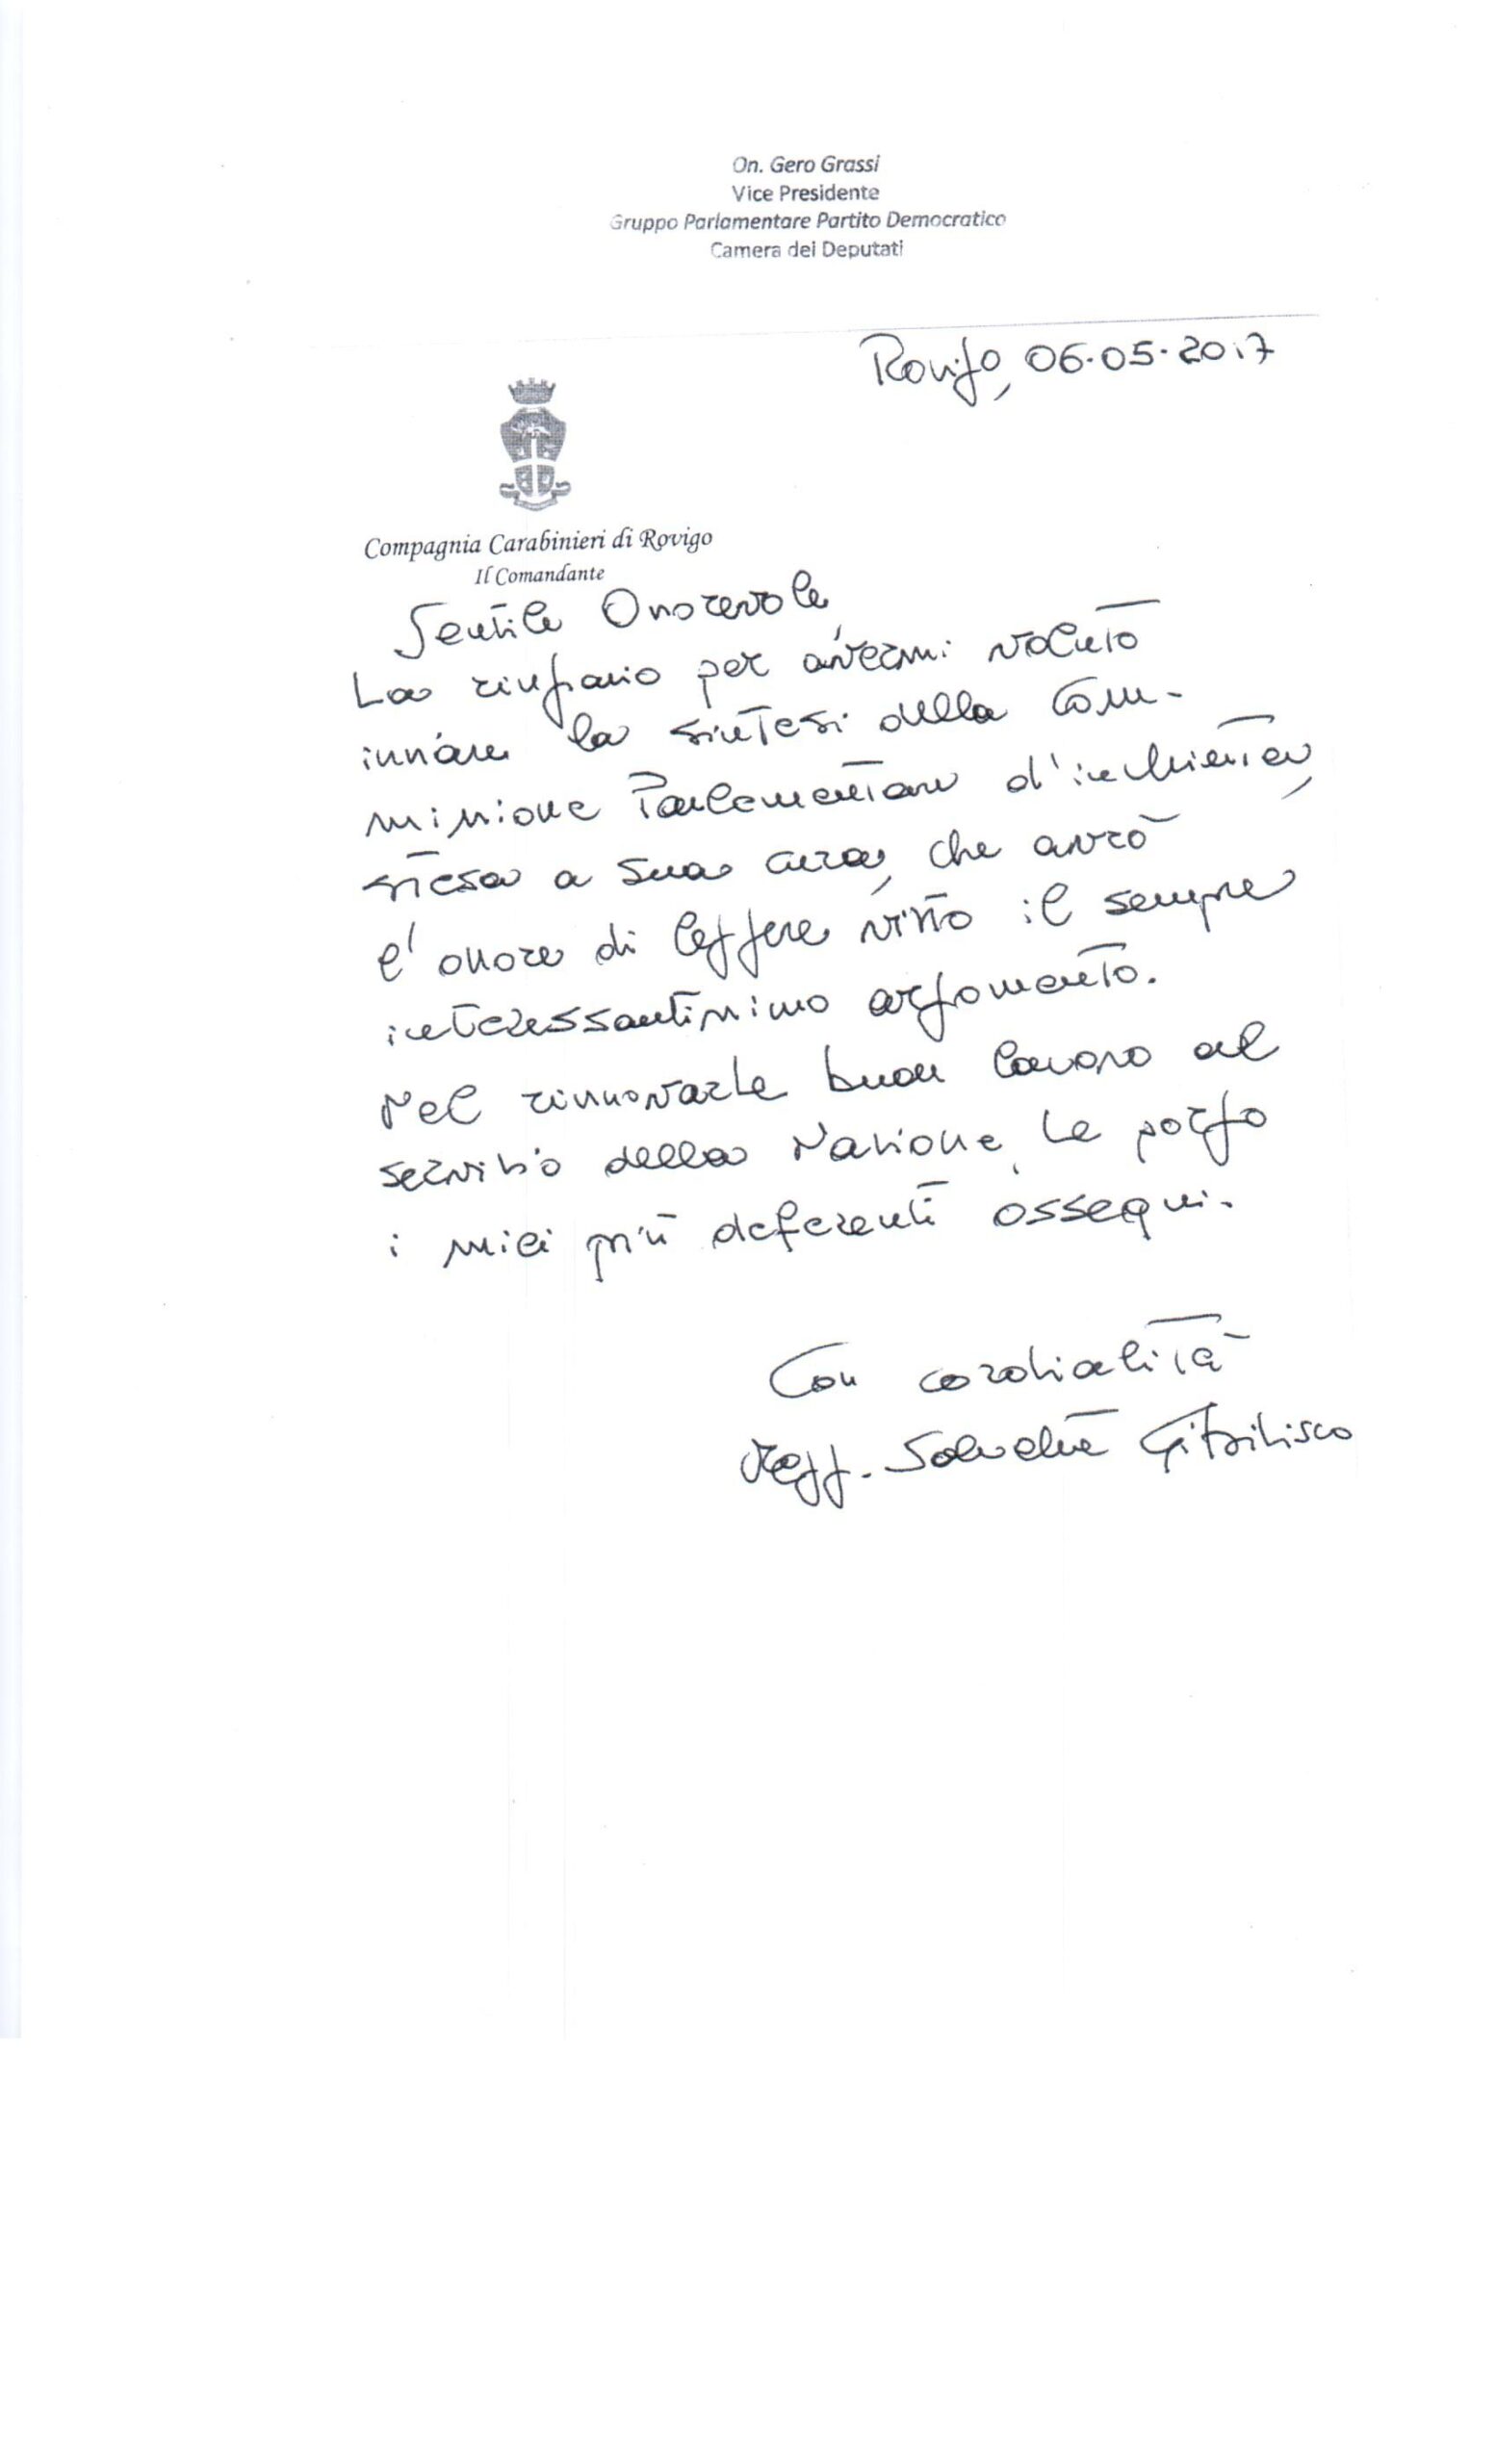 On. Gero Grassi
Vice Presidente
Gruppo Parlamentare Partito Democratico
Camera dei Deputati
Rovigo, 06.05.2017
Compagnia Carabinieri di Rovigo
Il Comandante
Gentile Onorevole,
La ringrazio per avermi voluto
inviare la sintesi della Com-
missione Parlamentare d'inchiesta,
stesa a sua cura, che avrò
l'onore di leggere visto il sempre
interessantissimo argomento.
Nel rinnovarLe buon lavoro al
servizio della Nazione, Le porgo
i miei più deferenti ossequi.
Con cordialità
Magg. Salvatore